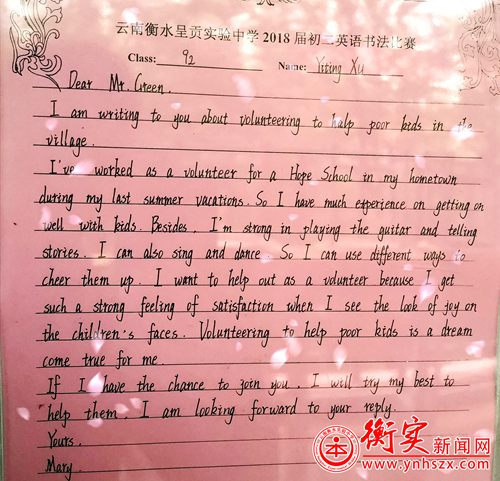 云南衡水呈贡实验中学2018届初二英语书法比赛
Class: 92 Name: Yiting Xu
Dear Mr. Green.
I am writing to you about volunteering to help poor kids in the
village.
I've worked as a volunteer for a Hope School in my hometown
during my last summer vacations. So I have much experience on getting on
well with kids. Besides. I'm strong in playing the guitar and telling
stories. I can also sing and dance. So I can use different ways to
cheer them up. I want to help out as a volunteer because I get
such a strong feeling of satisfaction when I see the look of joy on
the children's faces. Volunteering to help poor kids is a dream
come true for me.
If I have the chance to join you. I will try my best to
help them. I am looking forward to your reply.
Yours.
Mary.
衡实新闻网
www.ynhszx.com